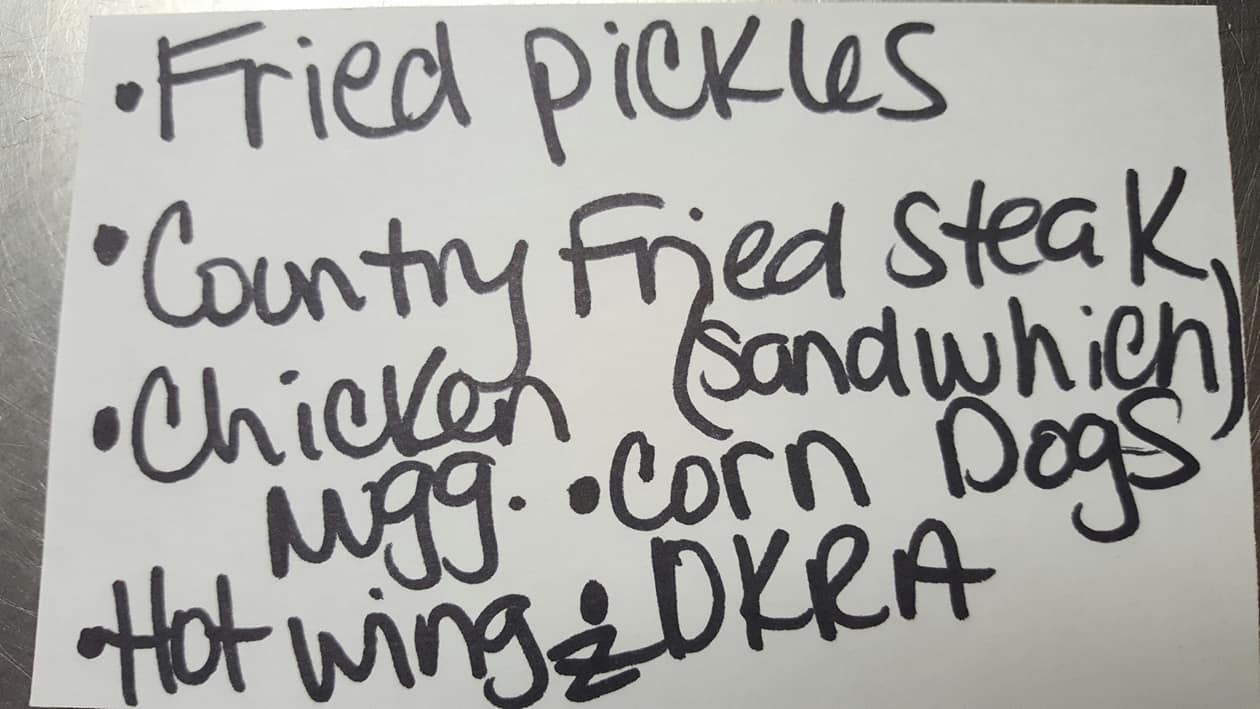 • Fried pickles
• Country Fried steak
(sandwhich)
• Chicken
Nugg. • Corn Dogs
• Hot wingz • OKRA